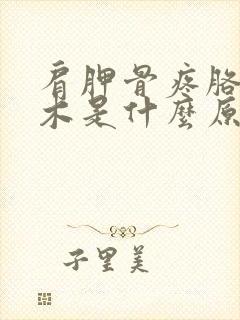 肩胛骨疼胳
木是什麼原
子里美